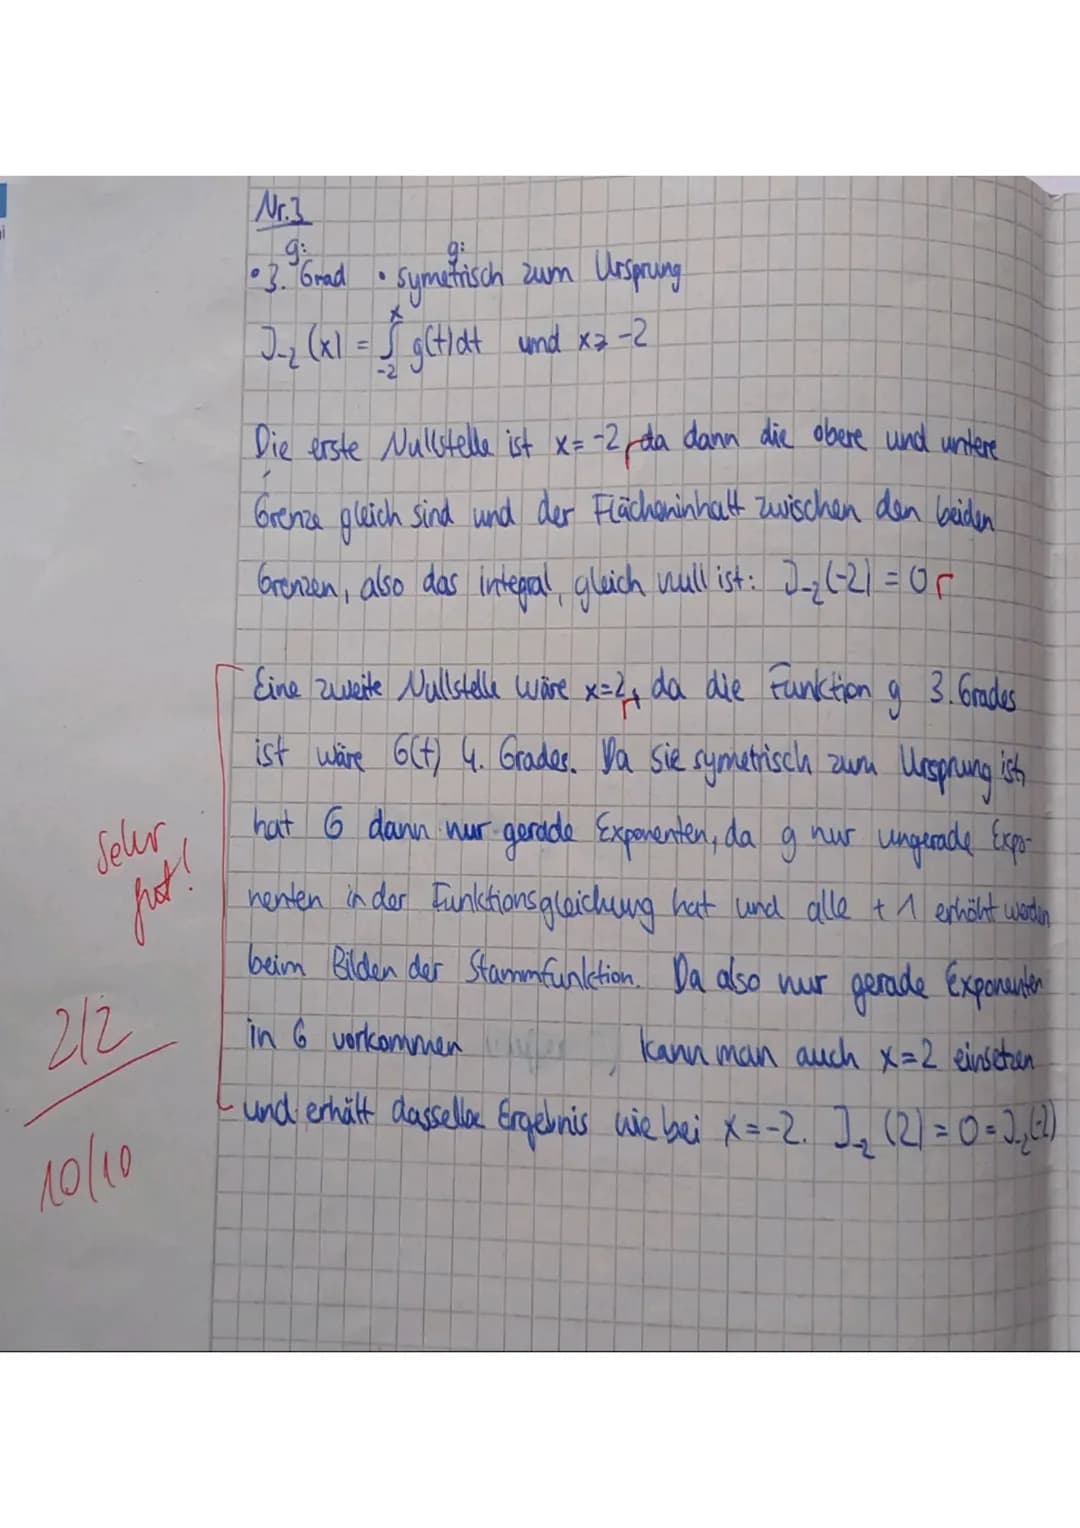 Nr. 3
g: g:
• 3. Grad • symetrisch zum Ursprung
J₋₂ (x) = ∫₋₂ˣ g(t) dt und x ≥ -2
Die erste Nullstelle ist x = -2, da dann die obere und untere
Grenze gleich sind und der Flächeninhalt zwischen den beiden
Grenzen, also das integral, gleich null ist: J₋₂(-2) = 0
Eine zweite Nullstelle wäre x=2, da die Funktion g 3. Grades
ist wäre G(t) 4. Grades. Da sie symetrisch zum Ursprung ist,
hat G dann nur gerade Exponenten, da g nur ungerade Expo-
nenten in der Funktionsgleichung hat und alle + 1 erhöht werden
Sehr
gut!
beim Bilden der Stammfunktion. Da also nur gerade Exponenten
in G vorkommen kann man auch x=2 einsetzen
2/2
und erhält dasselbe Ergebnis wie bei x = -2. J₋₂ (2) = 0 = J₋₂(-2)
10/10